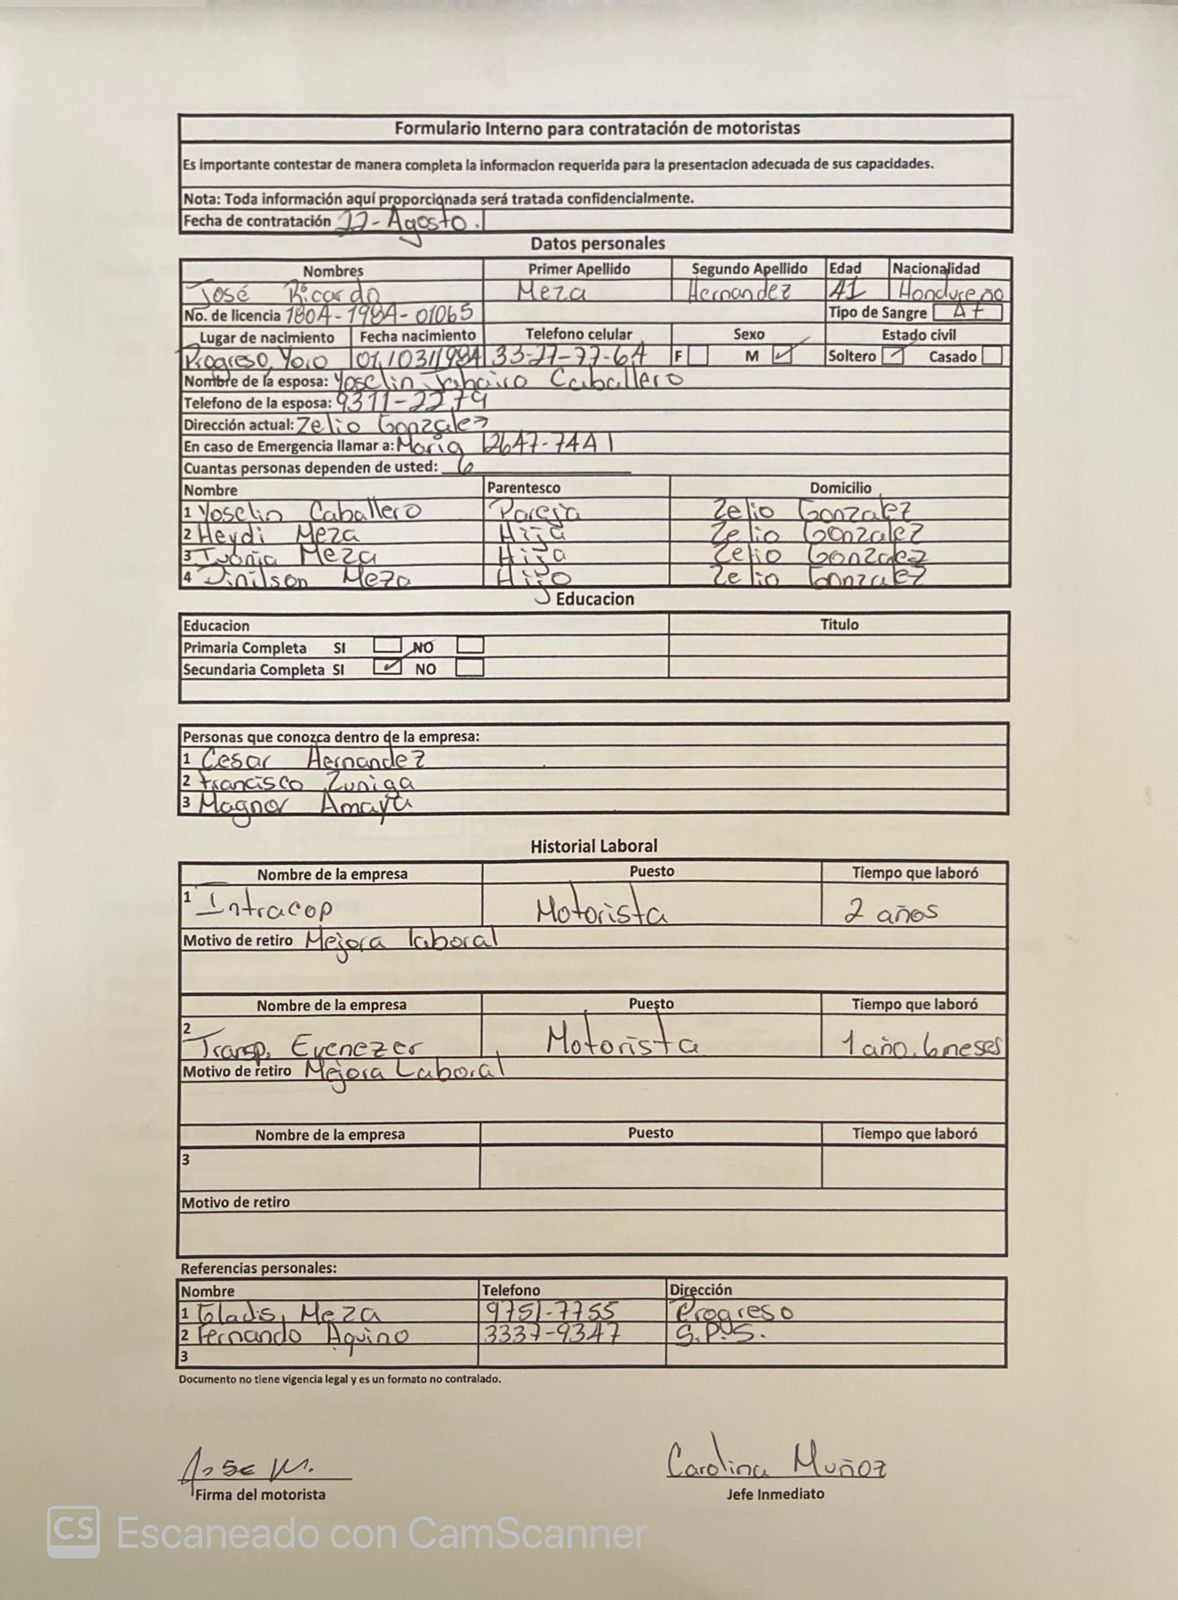 Formulario Interno para contratación de motoristas
Es importante contestar de manera completa la informacion requerida para la presentacion adecuada de sus capacidades.
Nota: Toda información aquí proporcionada será tratada confidencialmente.
Fecha de contratación 22-Agosto.
Datos personales
Nombres Primer Apellido Segundo Apellido Edad Nacionalidad
José Ricardo Meza Hernandez 41 Hondureño
No. de licencia 1804-1984-01065 Tipo de Sangre A+
Lugar de nacimiento Fecha nacimiento Telefono celular Sexo Estado civil
Progreso, Yoro 01/03/1984 33-27-77-64 F M Soltero Casado
Nombre de la esposa: Yosclin Caballero
Telefono de la esposa: 9311-2279
Dirección actual: Zelio Gonzalez
En caso de Emergencia llamar a: Maria 2647-7441
Cuantas personas dependen de usted: 6
Nombre Parentesco Domicilio
1 Yosclin Caballero Pareja Zelio Gonzalez
2 Heydi Meza Hija Zelio Gonzalez
3 Meza Hija Zelio Gonzalez
4 Jinilson Meza Hijo Zelio Gonzalez
Educacion
Educacion Titulo
Primaria Completa SI NO
Secundaria Completa SI NO
Personas que conozca dentro de la empresa:
1 Cesar Hernandez
2 Francisco Zuniga
3 Magner Amaya
Historial Laboral
Nombre de la empresa Puesto Tiempo que laboró
1 Intracop Motorista 2 años
Motivo de retiro Mejora laboral
Nombre de la empresa Puesto Tiempo que laboró
2 Transp. Evenezer Motorista 1 año, 6 meses
Motivo de retiro Mejora Laboral
Nombre de la empresa Puesto Tiempo que laboró
3
Motivo de retiro
Referencias personales:
Nombre Telefono Dirección
1 Gladis Meza 9751-7755 Progreso
2 Fernando Aquino 3337-9347 S.P.S.
3
Documento no tiene vigencia legal y es un formato no contralado.
Jose M. Carolina Muñoz
Firma del motorista Jefe Inmediato
CS Escaneado con CamScanner